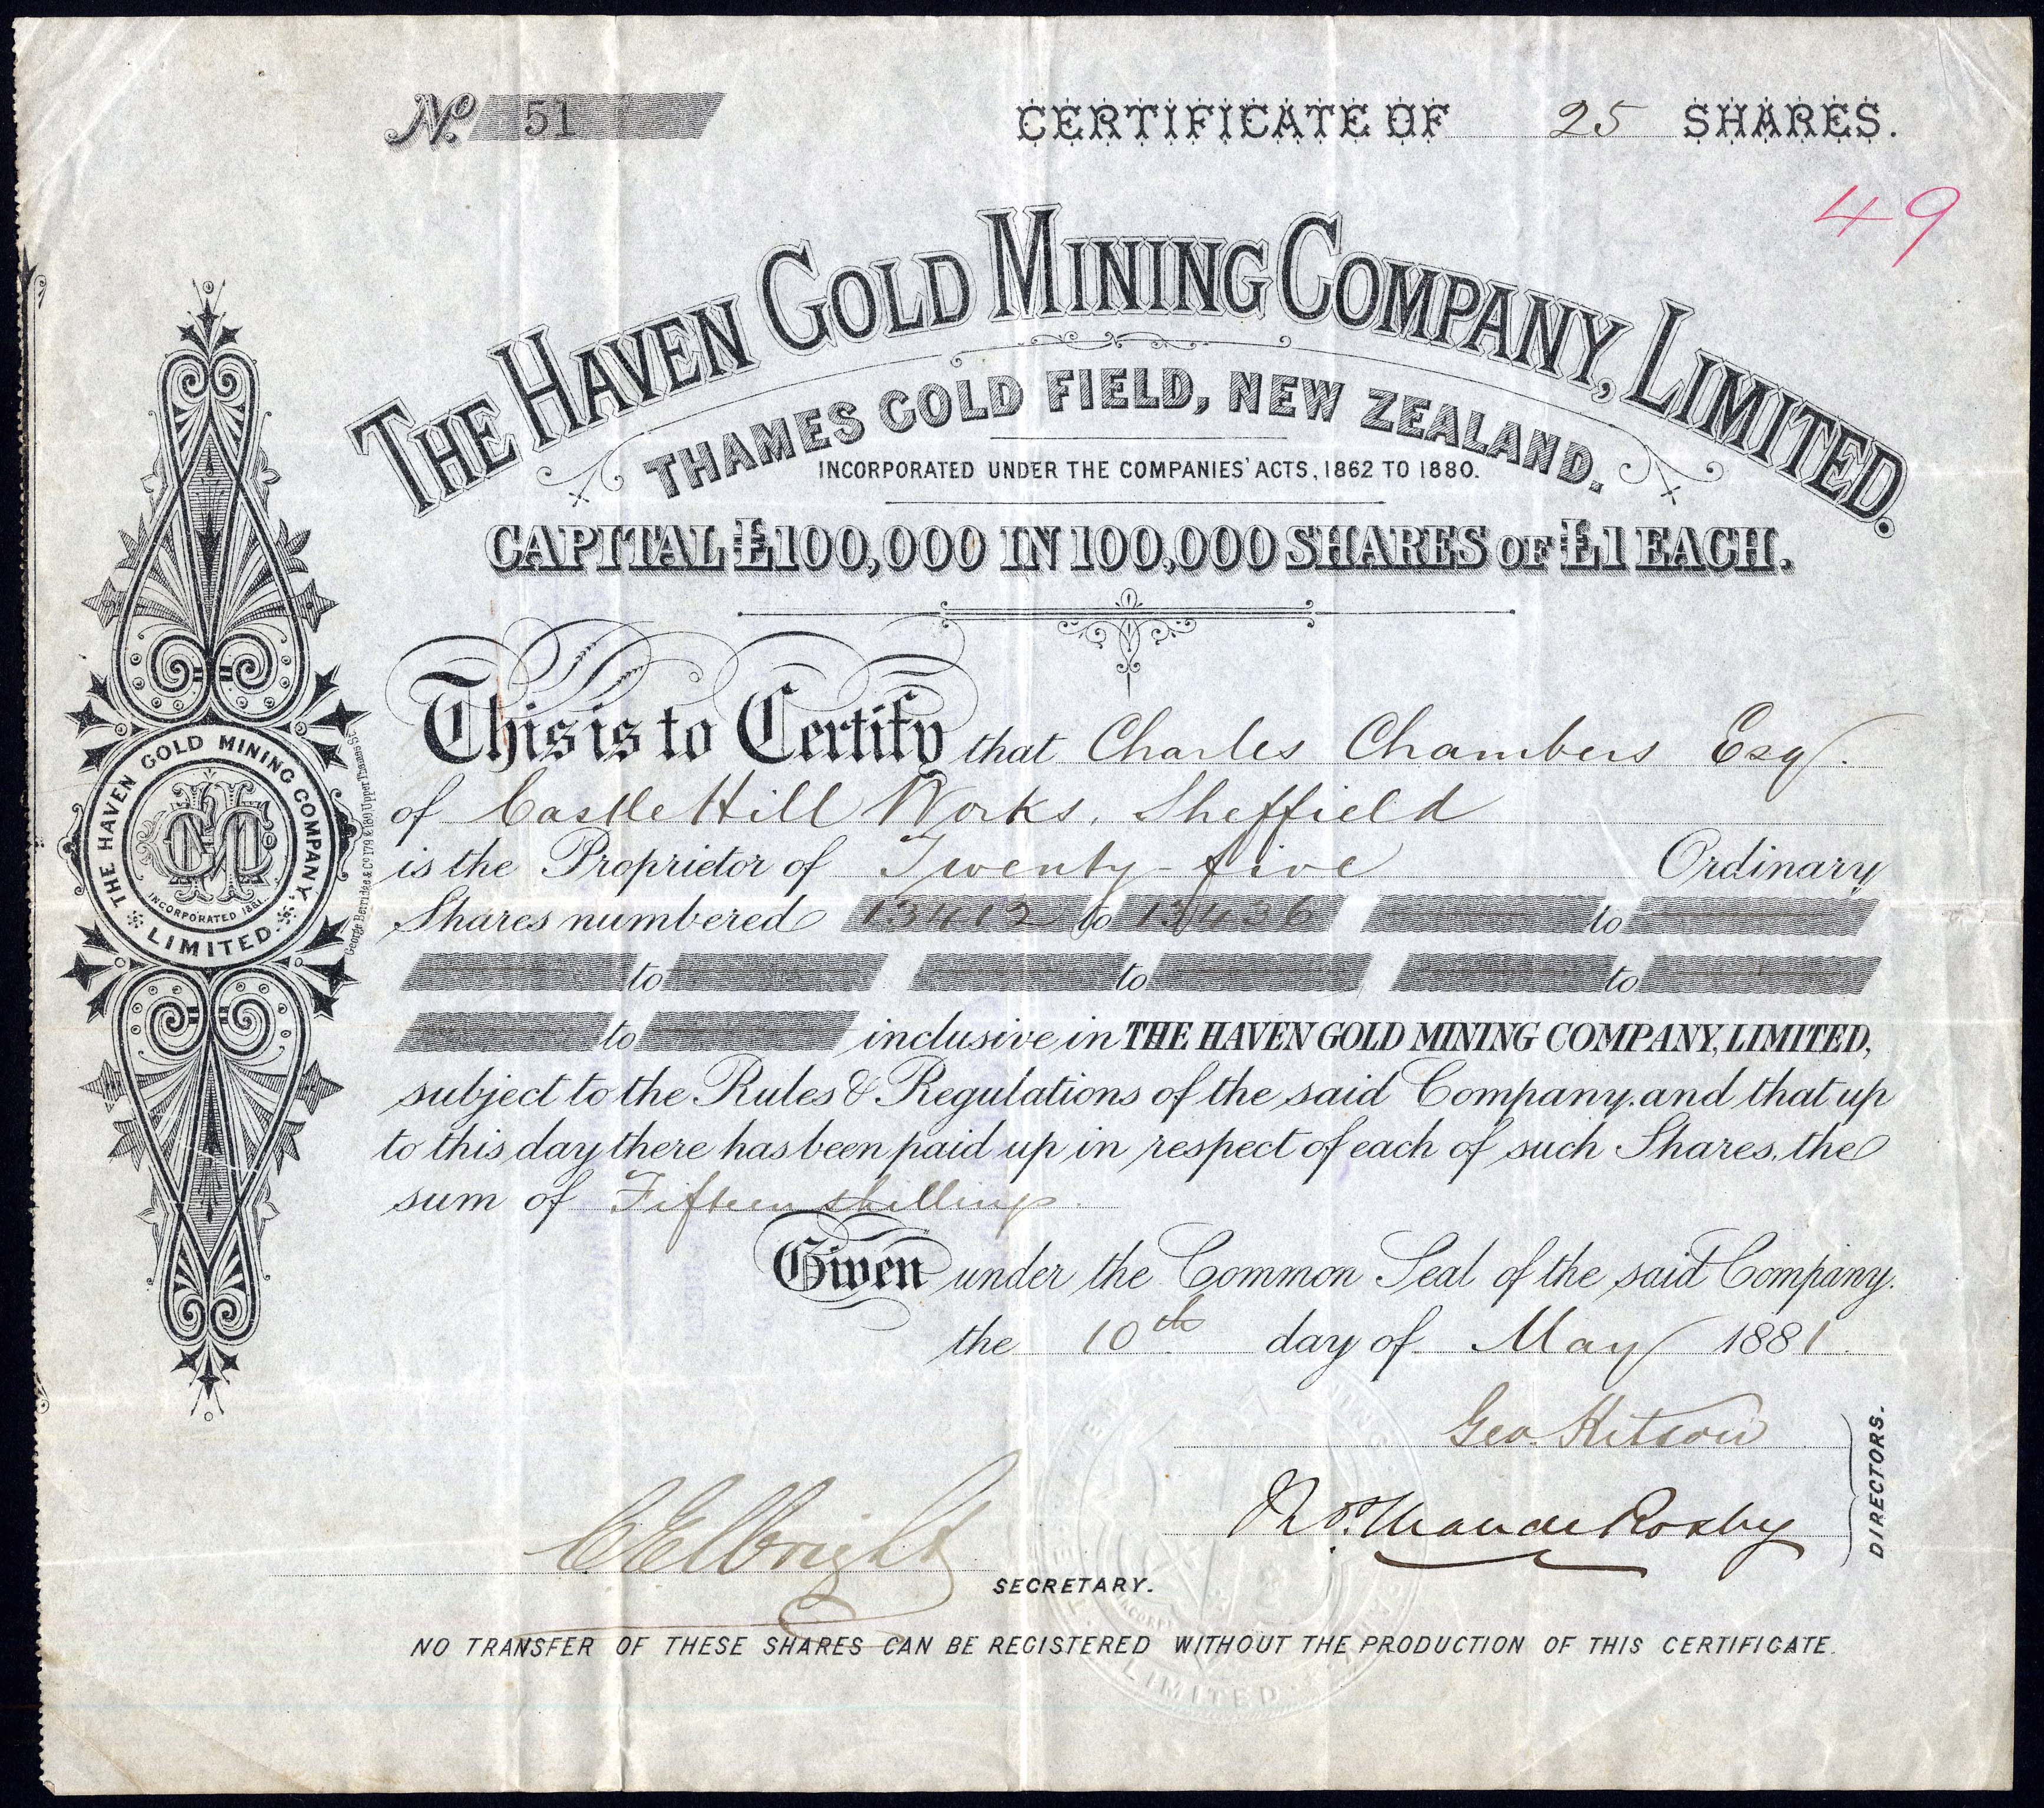 No. 51
CERTIFICATE OF 25 SHARES.
49
THE HAVEN GOLD MINING COMPANY, LIMITED.
THAMES GOLD FIELD, NEW ZEALAND.
INCORPORATED UNDER THE COMPANIES' ACTS, 1862 TO 1880.
CAPITAL £100,000 IN 100,000 SHARES OF £1 EACH.
This is to Certify that Charles Chambers Esq.
of Castle Hill Works, Sheffield
is the Proprietor of Twenty-five Ordinary
Shares numbered 13412 to 13436 to
to to to
to inclusive in THE HAVEN GOLD MINING COMPANY, LIMITED,
subject to the Rules & Regulations of the said Company, and that up
to this day there has been paid up in respect of each of such Shares, the
sum of Fifteen shillings.
Given under the Common Seal of the said Company.
the 10th day of May 1881.
Geo. Kitson
Rosby
DIRECTORS.
C Elbright
SECRETARY.
NO TRANSFER OF THESE SHARES CAN BE REGISTERED WITHOUT THE PRODUCTION OF THIS CERTIFICATE.
THE HAVEN GOLD MINING COMPANY,
LIMITED.
INCORPORATED 1881.
George Berridge & Co 179 & 180 Upper Thames St.
LIMITED